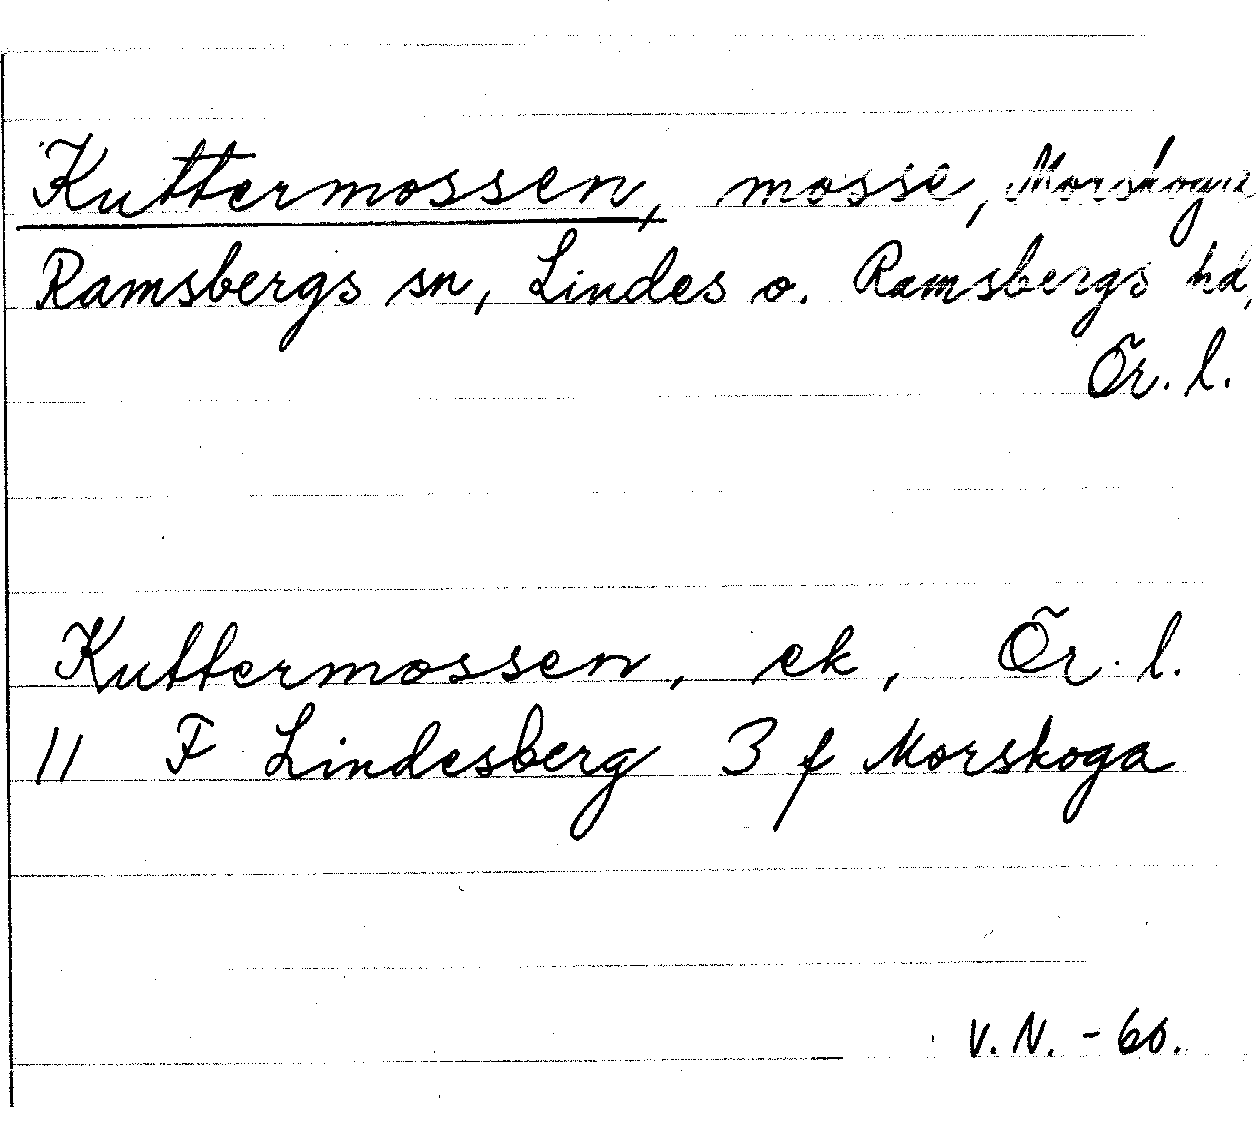 Kuttermossen, mosse, Morskoga
Ramsbergs sn, Lindes o. Ramsbergs hd,
Ör. l.
Kuttermossen, ek, Ör. l.
11 F Lindesberg 3 f Morskoga
V. N. - 60.